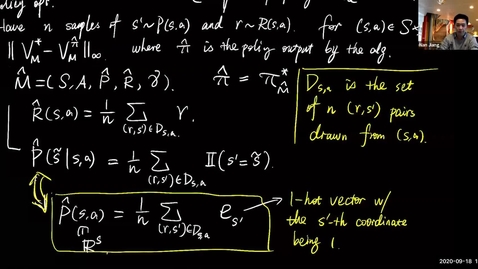 Have n samples of s'~P(s,a) and r~R(s,a) for (s,a)∈S×
‖V*_M − V^π̂_M‖_∞. where π̂ is the policy output by the alg.
M̂ = (S, A, P̂, R̂, γ). π̂ = π*_M̂
R̂(s,a) = 1/n Σ_{(r,s')∈D_{s,a}} r.
D_{s,a} is the set
of n (r,s') pairs
drawn from (s,a).
P̂(s̃|s,a) = 1/n Σ_{(r,s')∈D_{s,a}} 𝕀(s'=s̃)
P̂(s,a) = 1/n Σ_{(r,s')∈D_{s,a}} e_{s'}
ℝ^S
1-hot vector w/
the s'-th coordinate
being 1.
Nan Jiang
2020-09-18